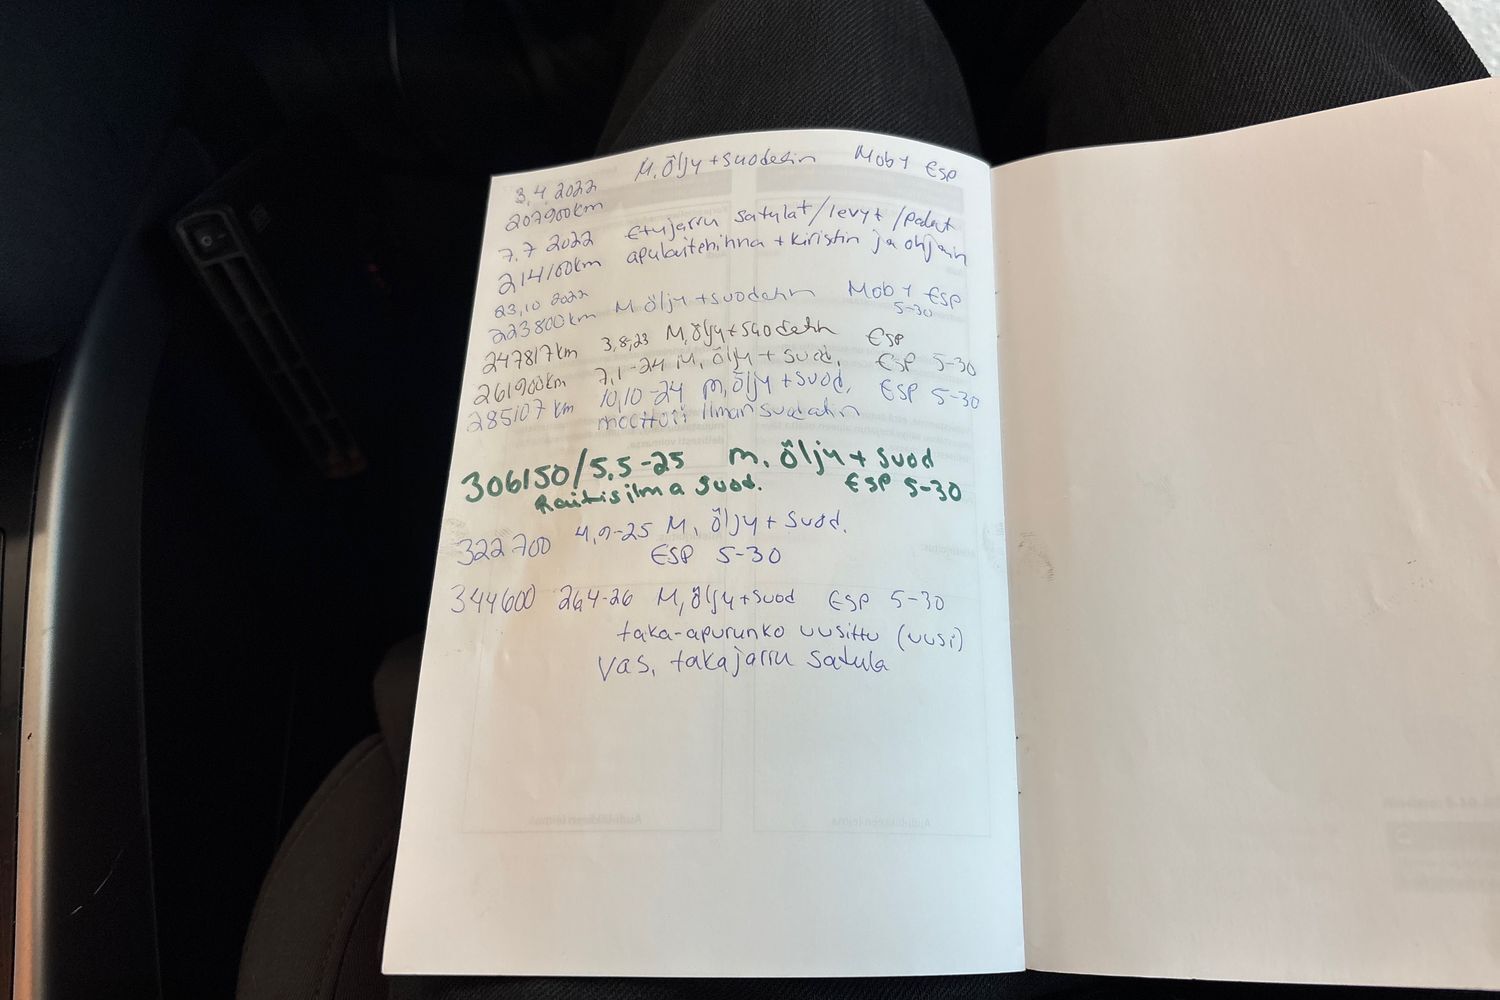 3.4.2022 M.Öljy+suodatin Mob1 ESP
207900km
7.7 2022 Etujarru satulat/levyt/palat
214100km apulaitehihna + kiristin ja ohjain
23,10 2022 M Öljy+suodatin Mob1 ESP
223800km 5-30
247817km 3,8,23 M,Öljy+suodatin ESP
261900km 7,1-24 M, Öljy + suod. ESP 5-30
285107 km 10,10-24 m,Öljy+suod, ESP 5-30
moottori ilman suodatin
306150/5,5-25 m. Öljy + suod
Raitisilma suod. ESP 5-30
322700 4,9-25 M, Öljy + suod.
ESP 5-30
344600 26,4-26 M,Öljy+suod ESP 5-30
taka-apurunko uusittu (uusi)
Vas, takajarru satula